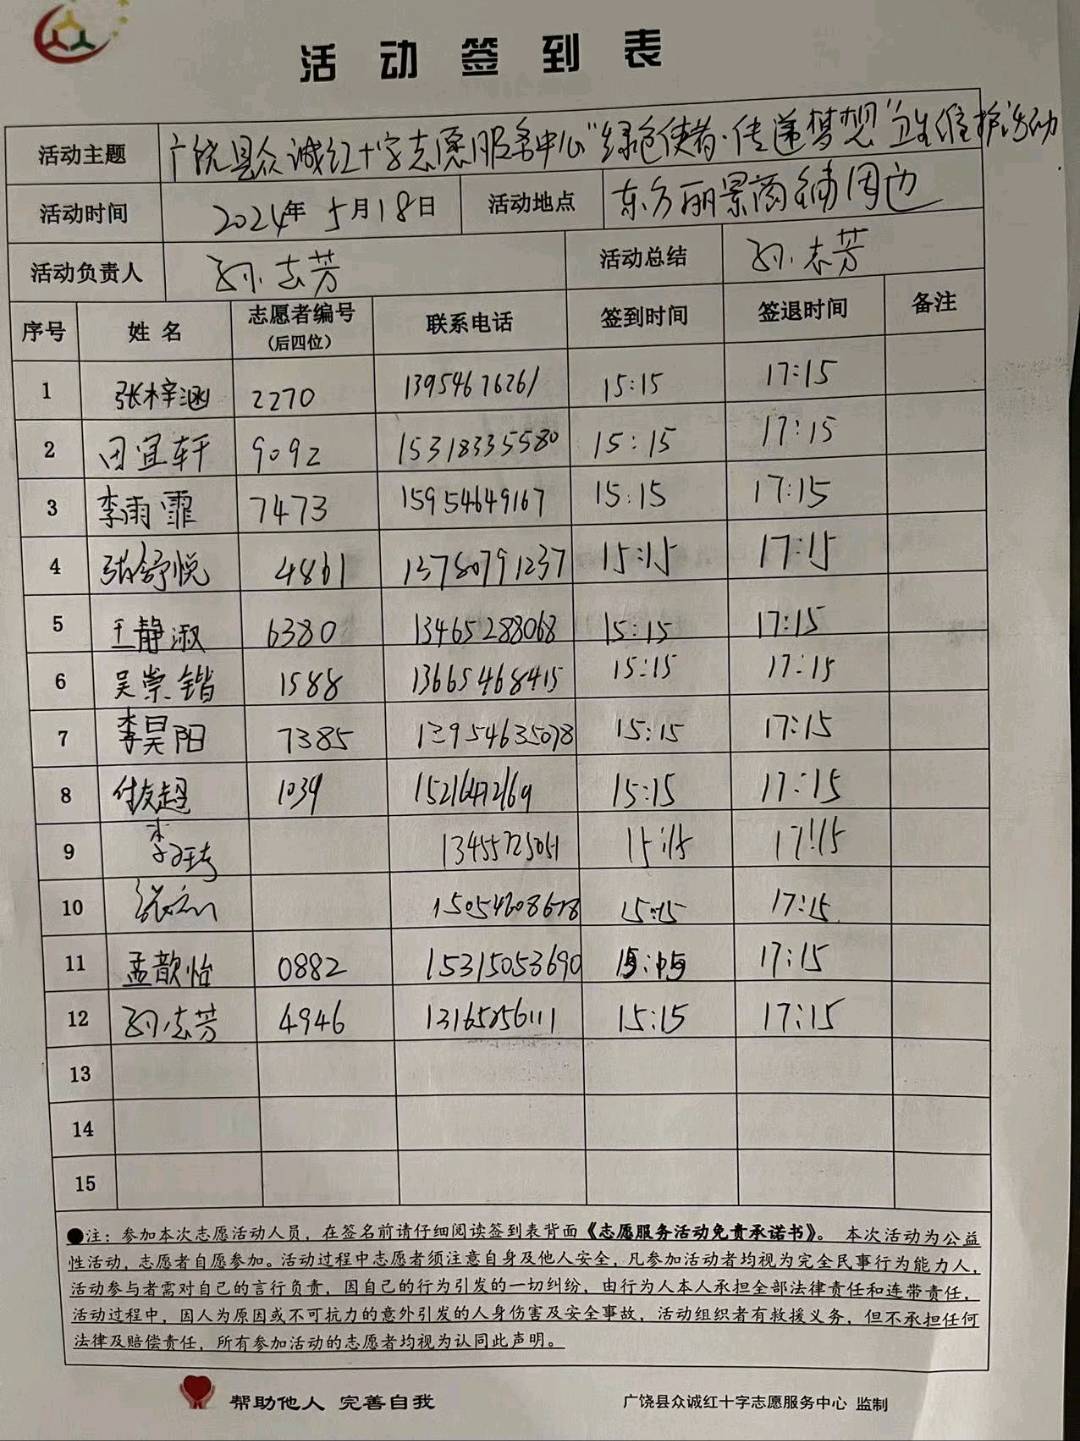 活动签到表
活动主题 广饶县众诚红十字志愿服务中心"绿色使者·传递梦想"卫生维护活动
活动时间 2024年5月18日 活动地点 东方丽景商铺周边
活动负责人 孙志芳 活动总结 孙志芳
序号 姓名 志愿者编号（后四位） 联系电话 签到时间 签退时间 备注
1 张梓涵 2270 13954676261 15:15 17:15
2 田宜轩 9092 15318335580 15:15 17:15
3 李雨霏 7473 15954649167 15:15 17:15
4 张舒悦 4861 13780791237 15:15 17:15
5 王静淑 6380 13465288068 15:15 17:15
6 吴崇锴 1588 13665468415 15:15 17:15
7 李昊阳 7385 13954635078 15:15 17:15
8 付友超 1039 15:15 17:15
9 13455725051 15:15 17:15
10 15:15 17:15
11 孟歆怡 0882 15315053690 17:15
12 孙志芳 4946 15:15 17:15
13
14
15
●注：参加本次志愿活动人员，在签名前请仔细阅读签到表背面《志愿服务活动免责承诺书》。 本次活动为公益
性活动，志愿者自愿参加。活动过程中志愿者须注意自身及他人安全，凡参加活动者均视为完全民事行为能力人，
活动参与者需对自己的言行负责，因自己的行为引发的一切纠纷，由行为人本人承担全部法律责任和连带责任，
活动过程中，因人为原因或不可抗力的意外引发的人身伤害及安全事故，活动组织者有救援义务，但不承担任何
法律及赔偿责任，所有参加活动的志愿者均视为认同此声明。
帮助他人 完善自我 广饶县众诚红十字志愿服务中心 监制